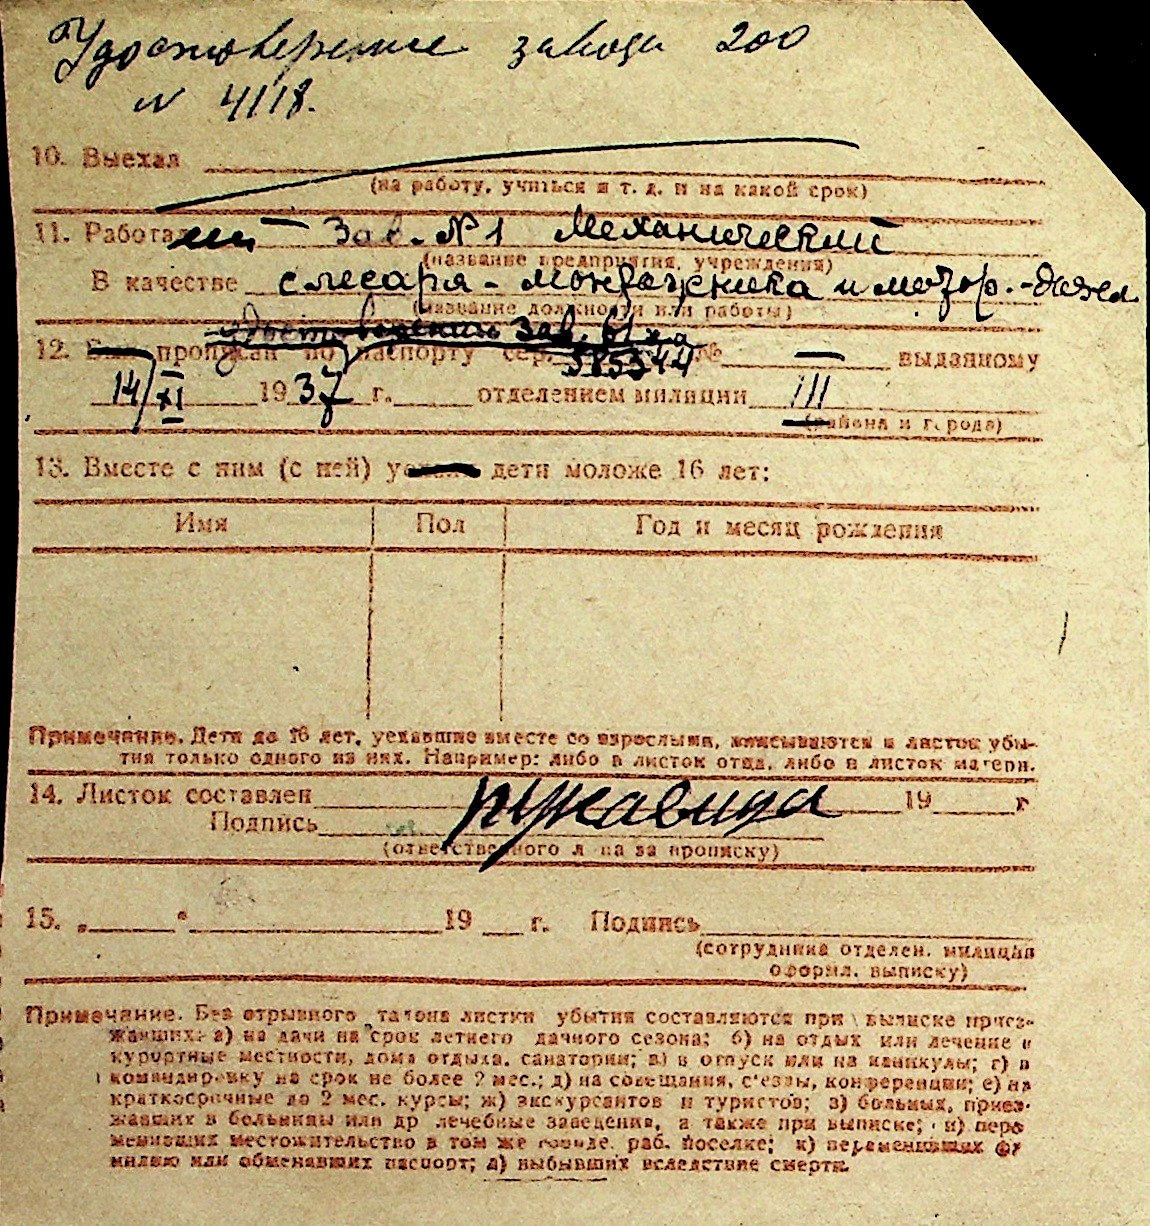 Удостоверение завода 200
N 4118.
10. Выехал
(на работу, учиться и т. д. и на какой срок)
11. Работал Зав. № 1 Механический
(название предприятия, учреждения)
В качестве слесаря - и мотор.-
(название должности или работы)
удостоверение Зав.
12. Был прописан по паспорту сер. 585344 № — выданному
14/XI 1937 г. отделением милиции III
(района и города)
13. Вместе с ним (с ней) дети моложе 16 лет:
Имя Пол Год и месяц рождения
Примечание. Дети до 16 лет, уехавшие вместе со взрослыми, вписываются в листок убы-
тия только одного из них. Например: либо в листок отца, либо в листок матери.
14. Листок составлен 19 г
Подпись
(ответственного л ца за прописку)
15. „ “ 19 г. Подпись
(сотрудника отделен. милиции
оформл. выписку)
Примечание. Без отрывного талона листки убытия составляются при выписке приез-
жавших: а) на дачи на срок летнего дачного сезона; б) на отдых или лечение в
курортные местности, дома отдыха, санатории; в) в отпуск или на каникулы; г) в
командировку на срок не более 2 мес.; д) на совещания, с'езды, конференции; е) на
краткосрочные до 2 мес. курсы; ж) экскурсантов и туристов; з) больных, приез-
жавших в больницы или др лечебные заведения, а также при выписке; и) пере
менивших местожительство в том же городе, раб. поселке; к) переменивших фа
милию или обменявших паспорт; л) выбывших вследствие смерти.